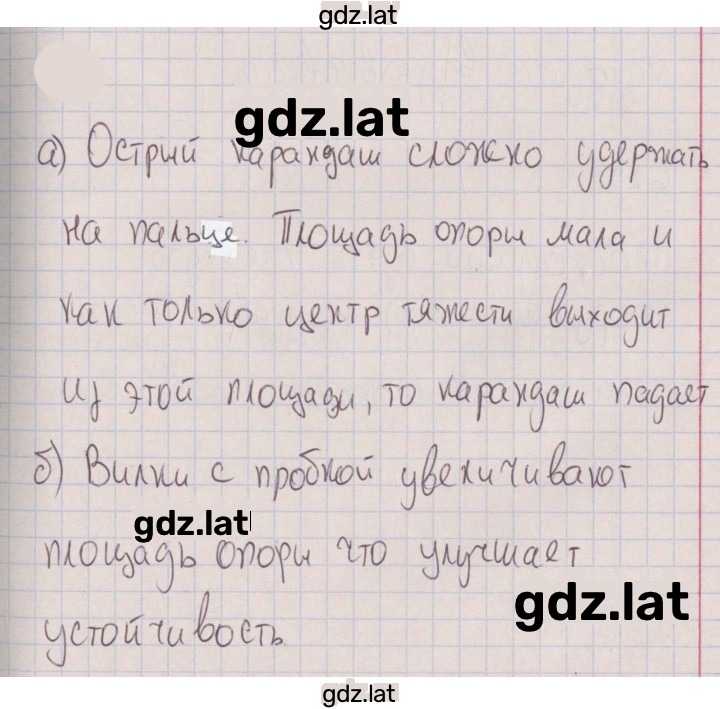 gdz.lat
gdz.lat
а) Острый карандаш сложно удержать
на пальце. Площадь опоры мала и
как только центр тяжести выходит
из этой площади, то карандаш падает
б) Вилки с пробкой увеличивают
gdz.lat
площадь опоры что улучшает
gdz.lat
устойчивость.
gdz.lat